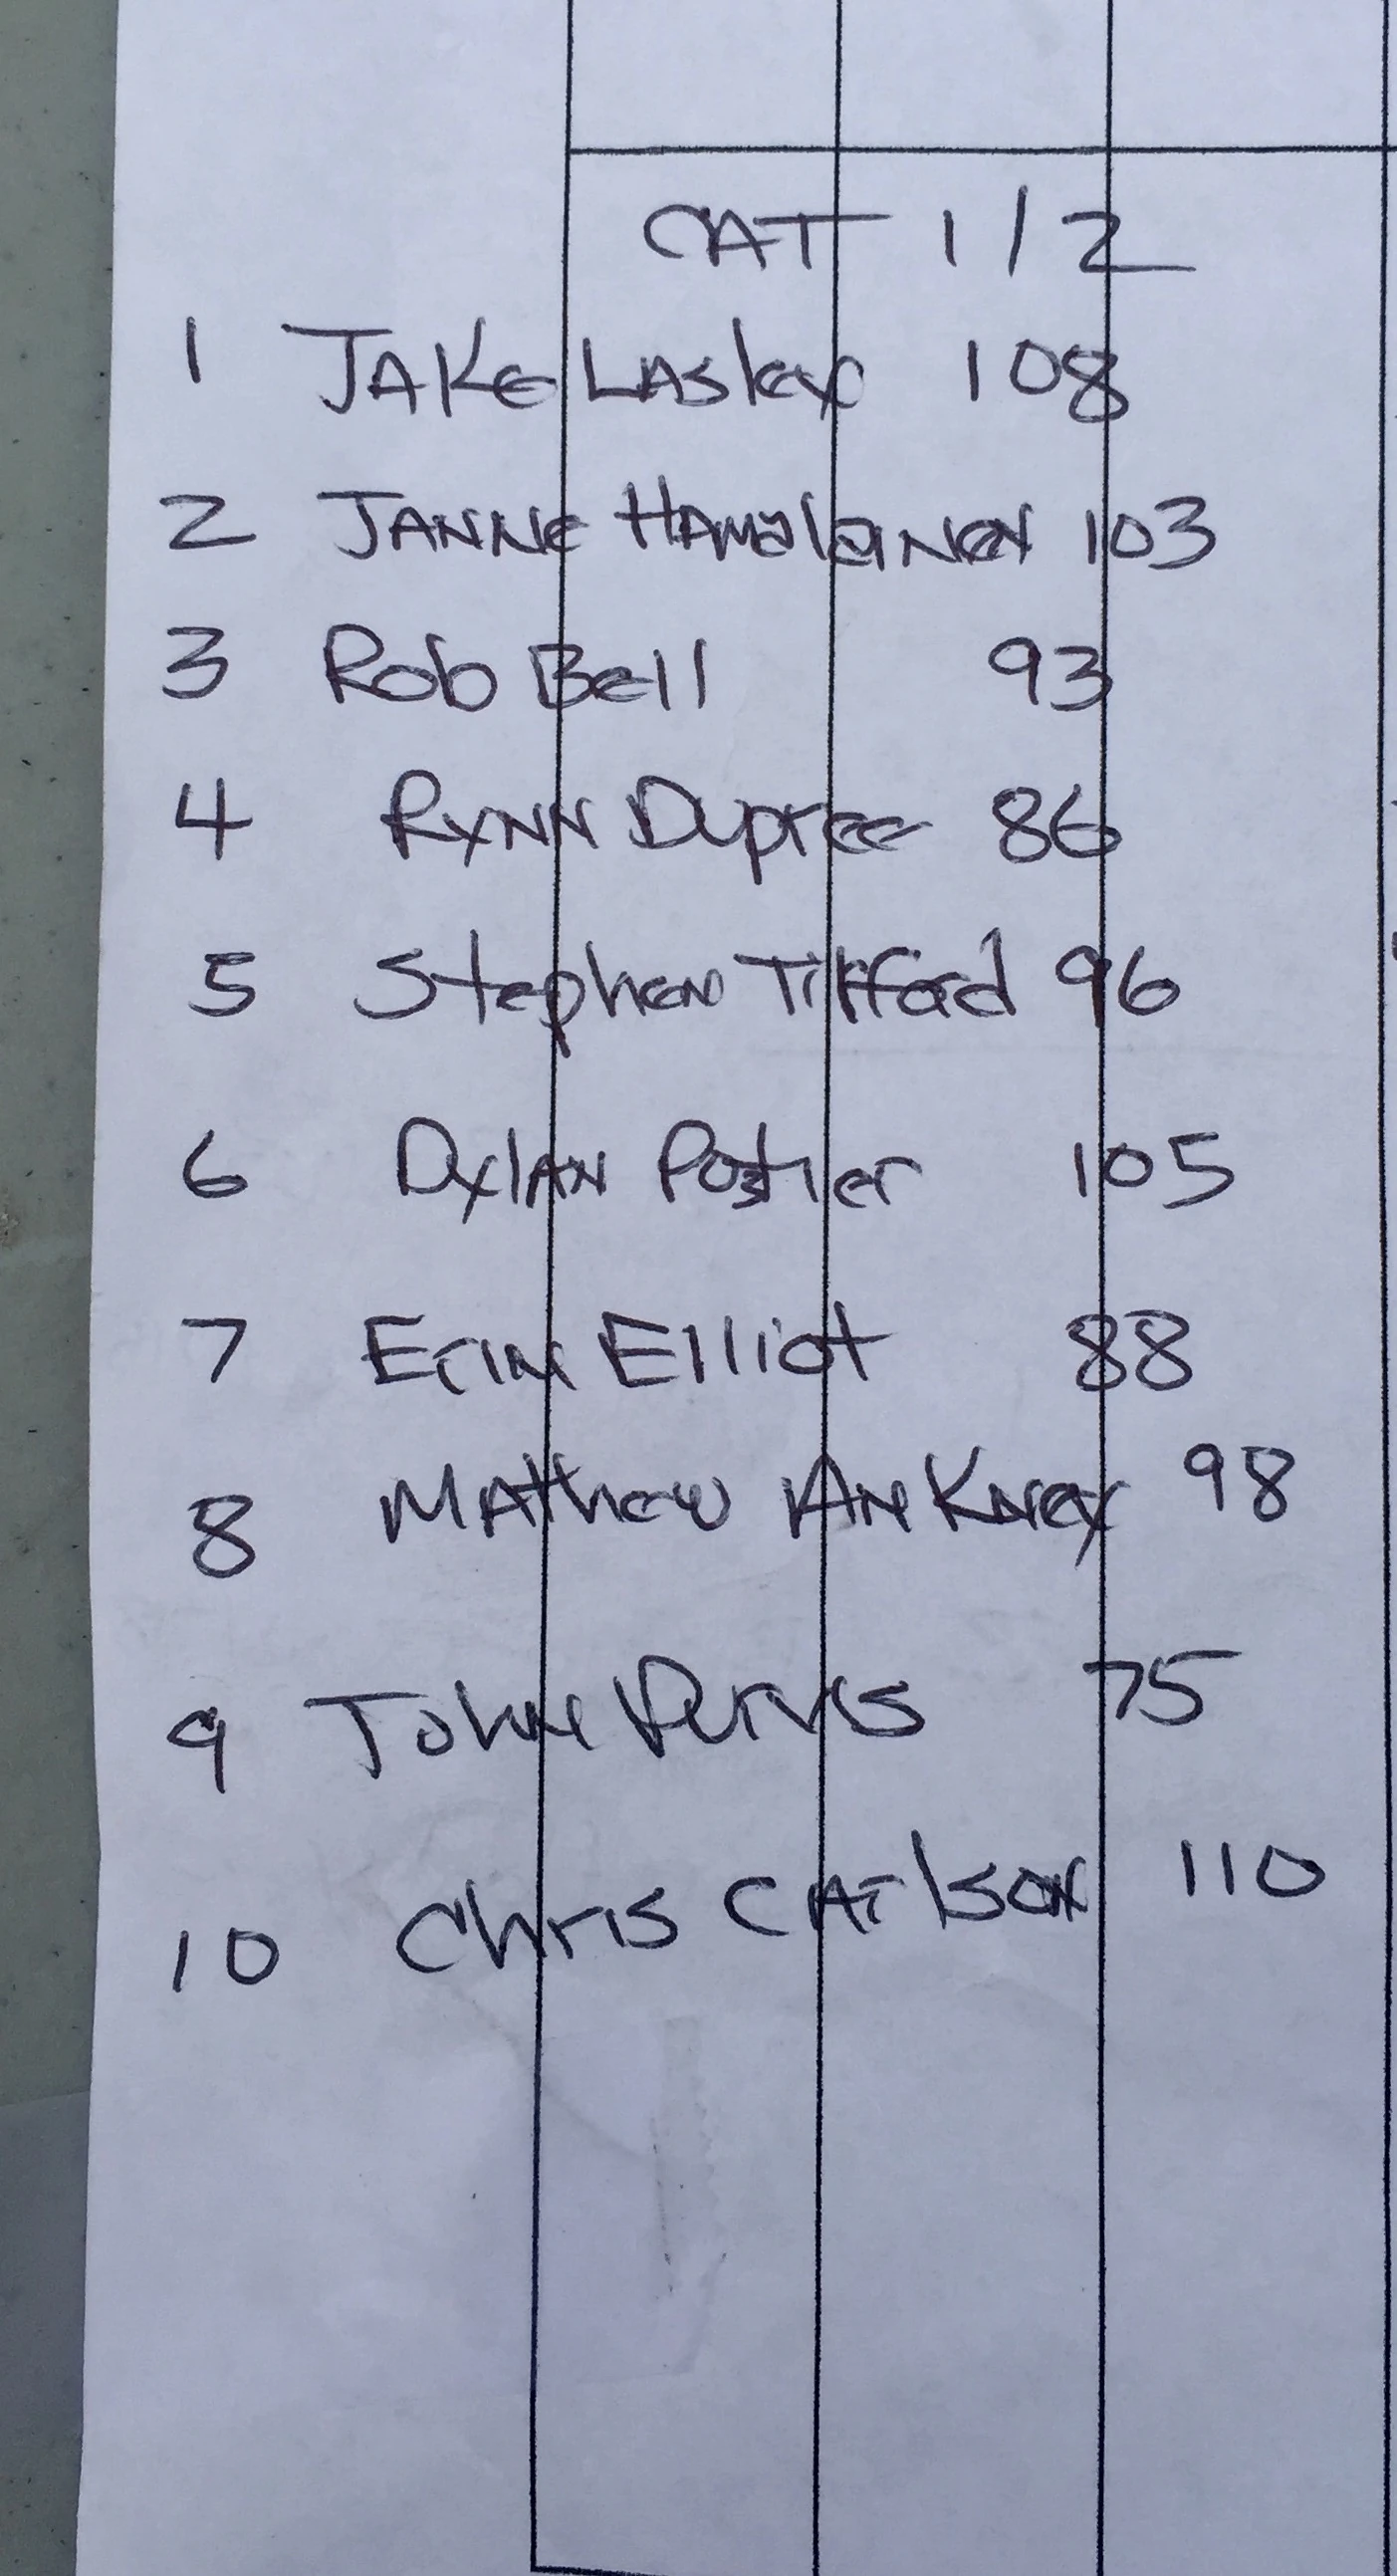 CAT 1/2
1 JAKE LASley 108
2 JANNE HAMalaiNeN 103
3 Rob Bell 93
4 RYNN Dupree 86
5 StepheN 96
6 DylAN 105
7 EriN Elliot 88
8 MAtthew ANKNey 98
9 JOHN PurVis 75
10 Chris CArlsoN 110